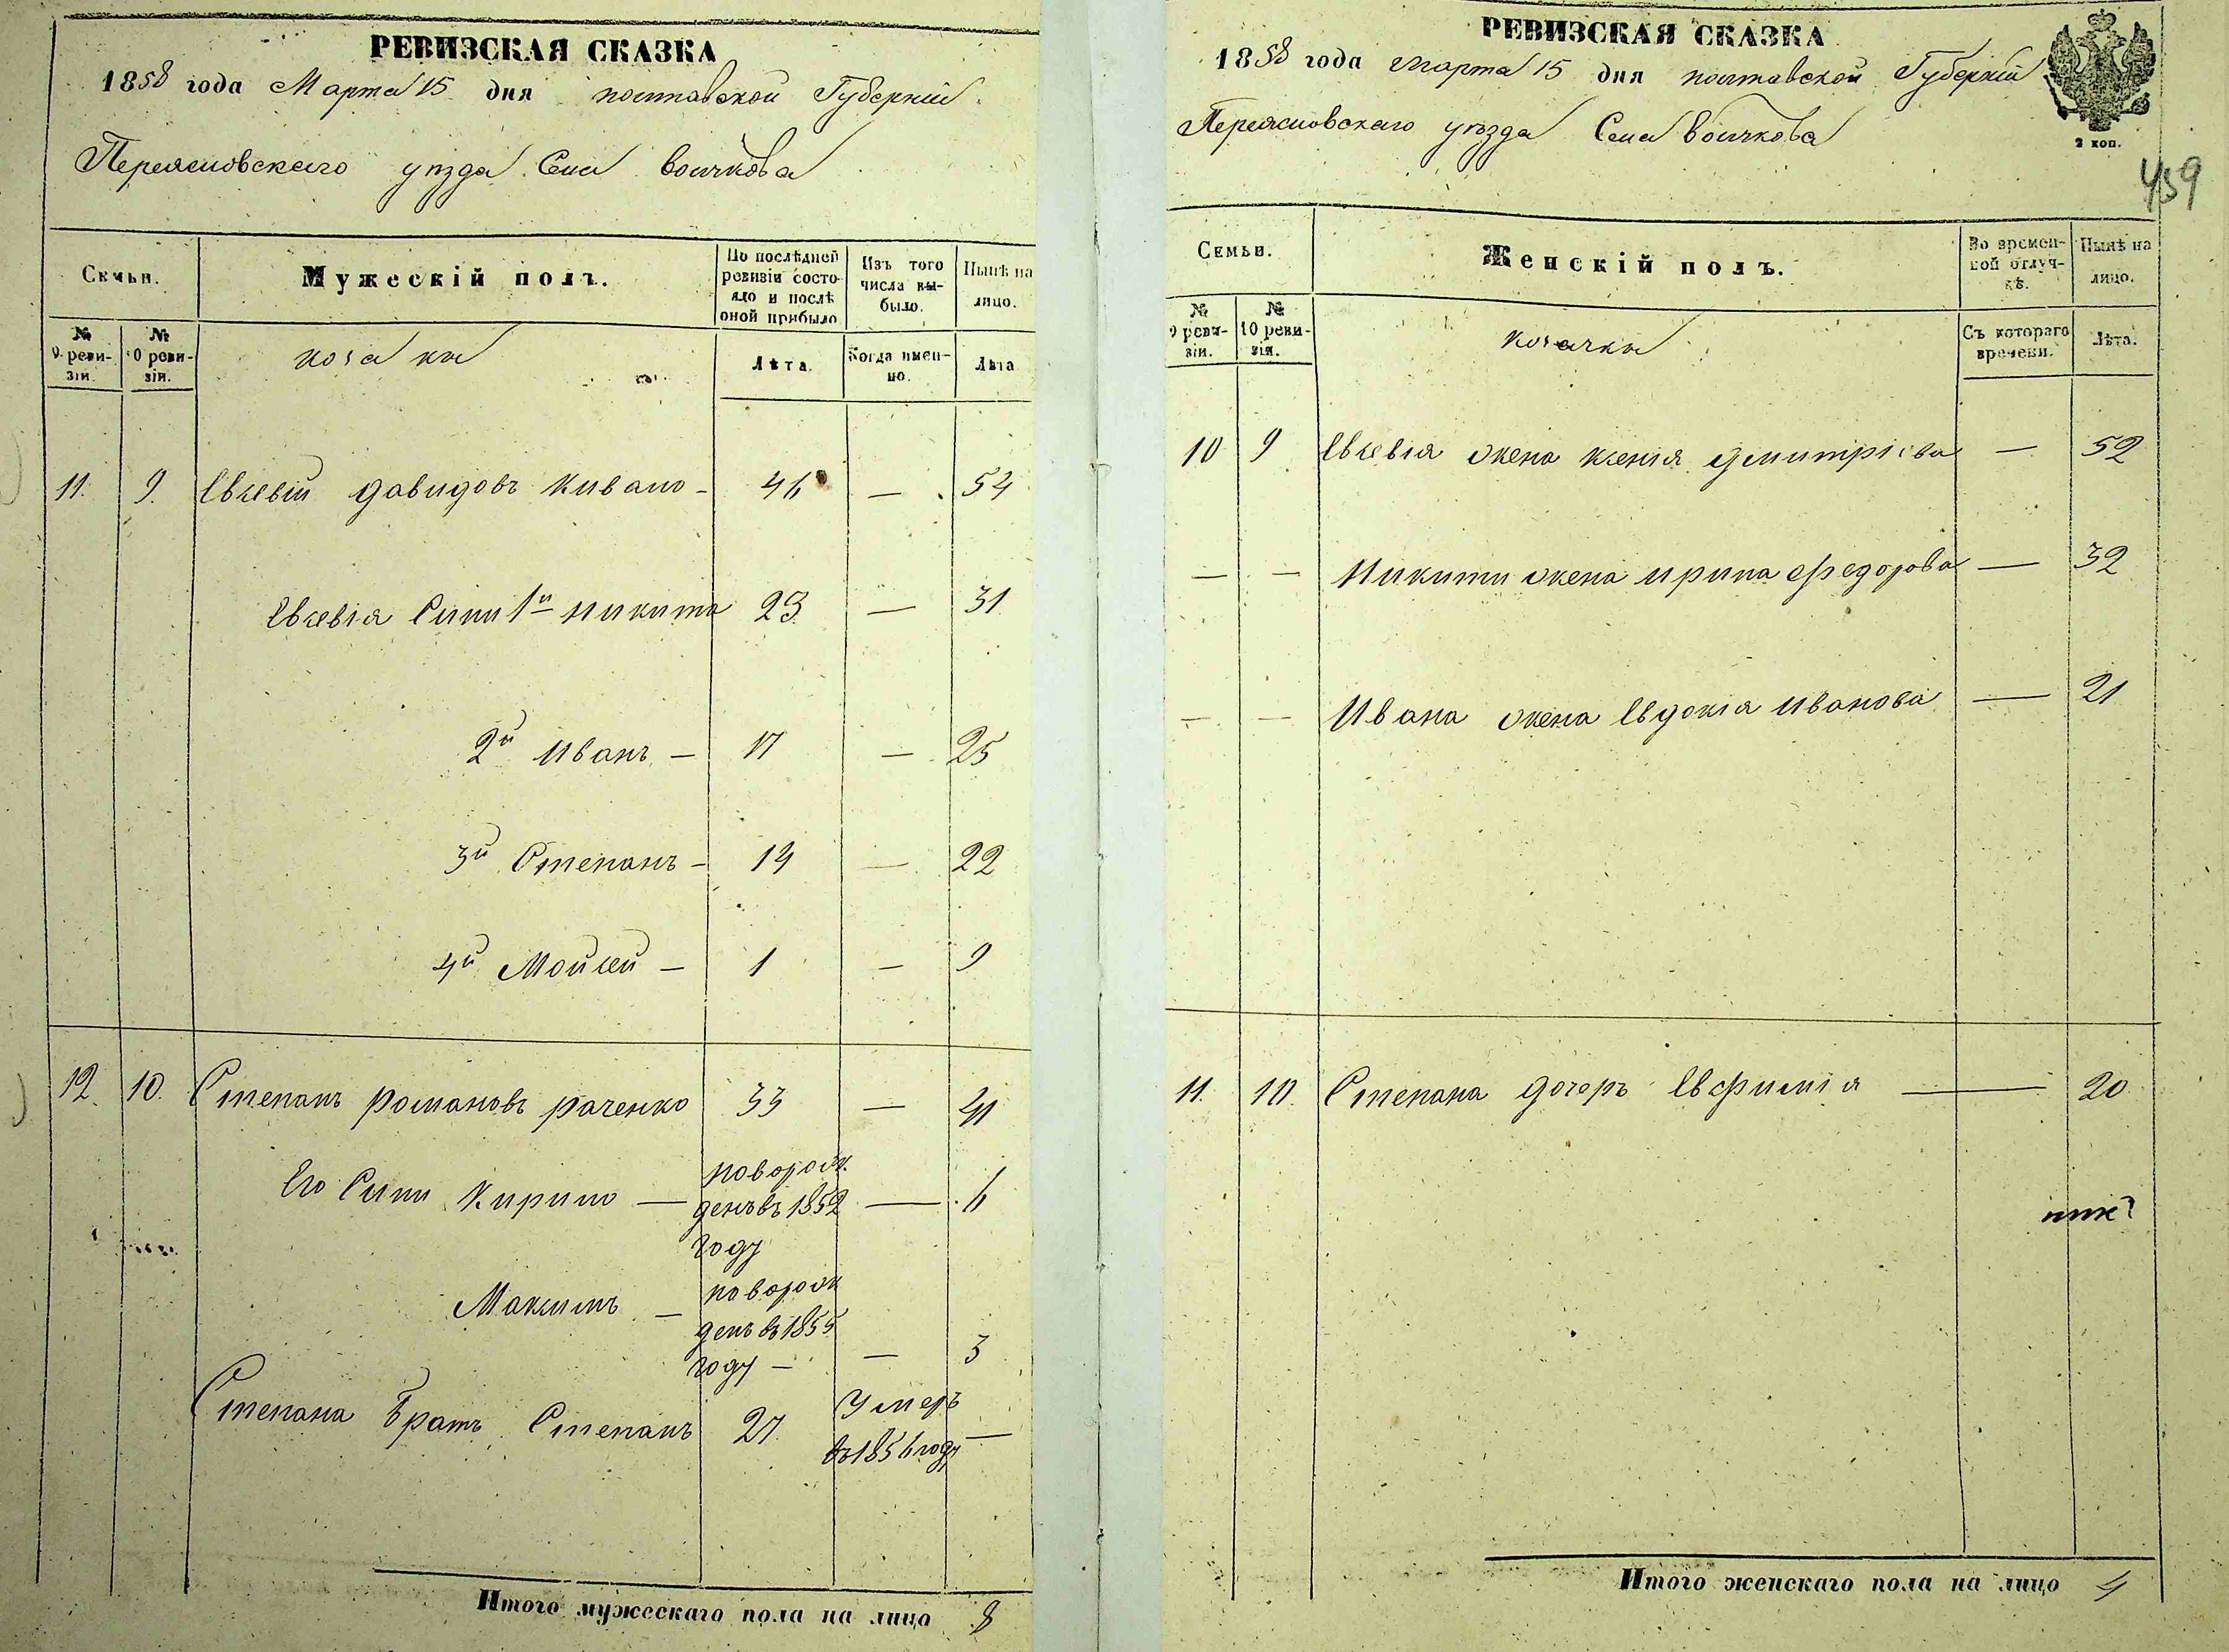 РЕВИЗСКАЯ СКАЗКА
1858 года Марта 15 дня полтавской Губерніи
Переясловскаго уѣзда Села Волчкова
Семьи.
Мужескій полъ.
По послѣдней ревизіи состояло и послѣ оной прибыло
Изъ того числа выбыло.
Нынѣ на лицо.
№ 9 ревизіи.
№ 10 ревизіи.
козаки
Лѣта.
Когда именно.
Лѣта
11. 9. Евсевій давидовъ Кивало - 46 — 54
Евсевія Сини 1й Никита 23 — 31
2й Иванъ — 17 — 25
3й Степанъ - 14 — 22
4й Мойсей — 1 — 9
12. 10. Степанъ романовъ раченко 33 — 41
Его Сини Кирило — новорож
денъ въ 1852 — 6
году
Максимъ — новорож
денъ въ 1855
году — — 3
Степана Братъ Степанъ 27 Умеръ —
въ 1856 году
Итого мужескаго пола на лицо 8
РЕВИЗСКАЯ СКАЗКА
1858 года марта 15 дня полтавской Губерніи
Переясловскаго уѣзда Села Волчкова
2 коп.
459
Семьи.
Женскій полъ.
Во временной отлучкѣ.
Нынѣ на лицо.
№ 9 ревизіи.
№ 10 ревизіи.
козачки
Съ котораго времени.
Лѣта.
10 9 Евсевія жена ксенія дмитріева — 52
— — Никити жена ирина федорова — 32
— — Ивана жена Евдокія Иванова — 21
11. 10. Степана дочеръ Евфимія — 20
Итого женскаго пола на лицо 4